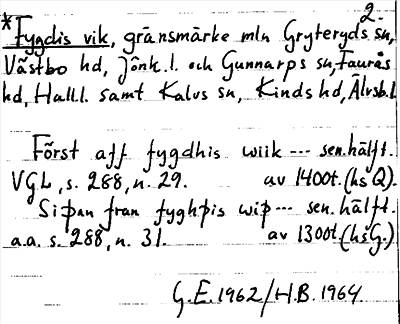 2.
*Fygdis vik, gränsmärke mln Gryteryds sn,
Västbo hd, Jönk.l. och Gunnarps sn, Faurås
hd, Hall.l. samt Kalvs sn, Kinds hd, Älvsb.l
Först aff fygdhis wiik --- sen.hälft.
VGL, s. 288, n. 29. av 1400t. (hs Q).
Siþan fran fyghþis wiþ --- sen. hälft.
a.a. s. 288, n. 31. av 1300t. (hs G.)
G.E. 1962/H.B. 1964.